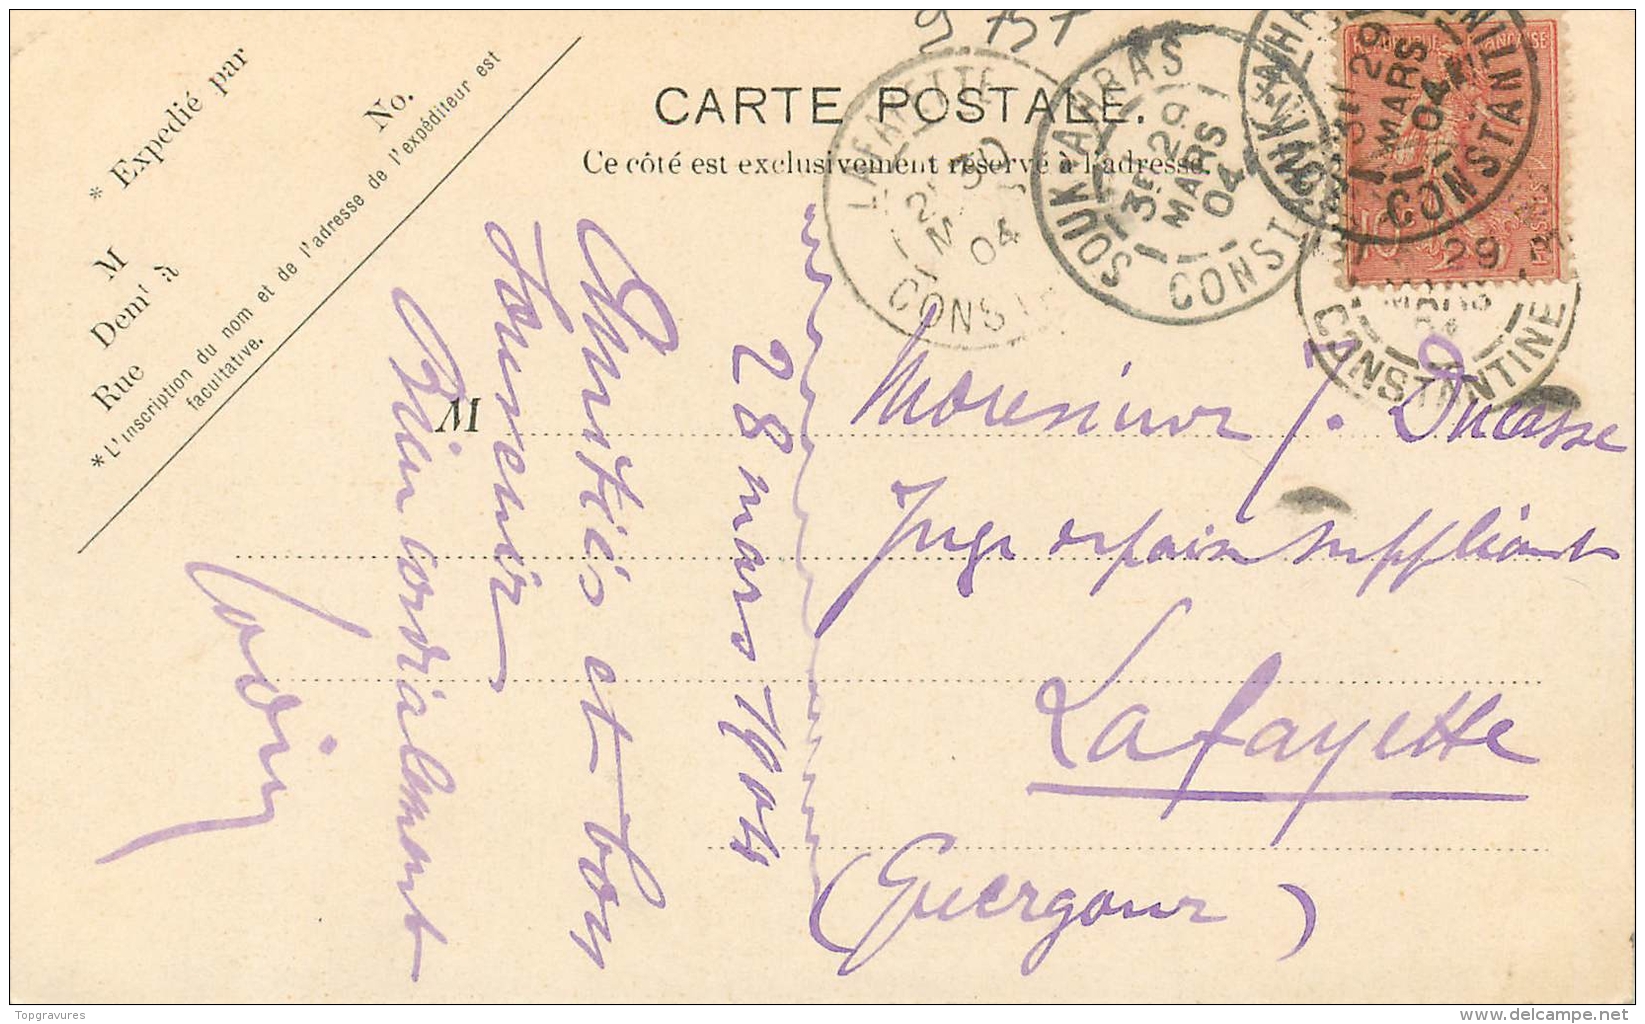 CARTE POSTALE.
Ce côté est exclusivement réservé à l'adresse.
* Expedié par
No.
M
Demt à
Rue
* L'inscription du nom et de l'adresse de l'expéditeur est
facultative.
M
Monsieur J. Ducasse
Juge de paix suppléant
Lafayette
(Guergour)
28 mars 1904
Amitiés et bon
souvenir
Bien cordialement
LAFAYETTE
30
04
CONST
SOUK AHRAS
3E 29
MARS
04
CONST
AHRAS
3E 29
MARS
04
CONSTANTINE
29
MARS
04
CONSTANTINE
REPUBLIQUE FRANÇAISE
POSTES
10
Topgravures
delcampe.net